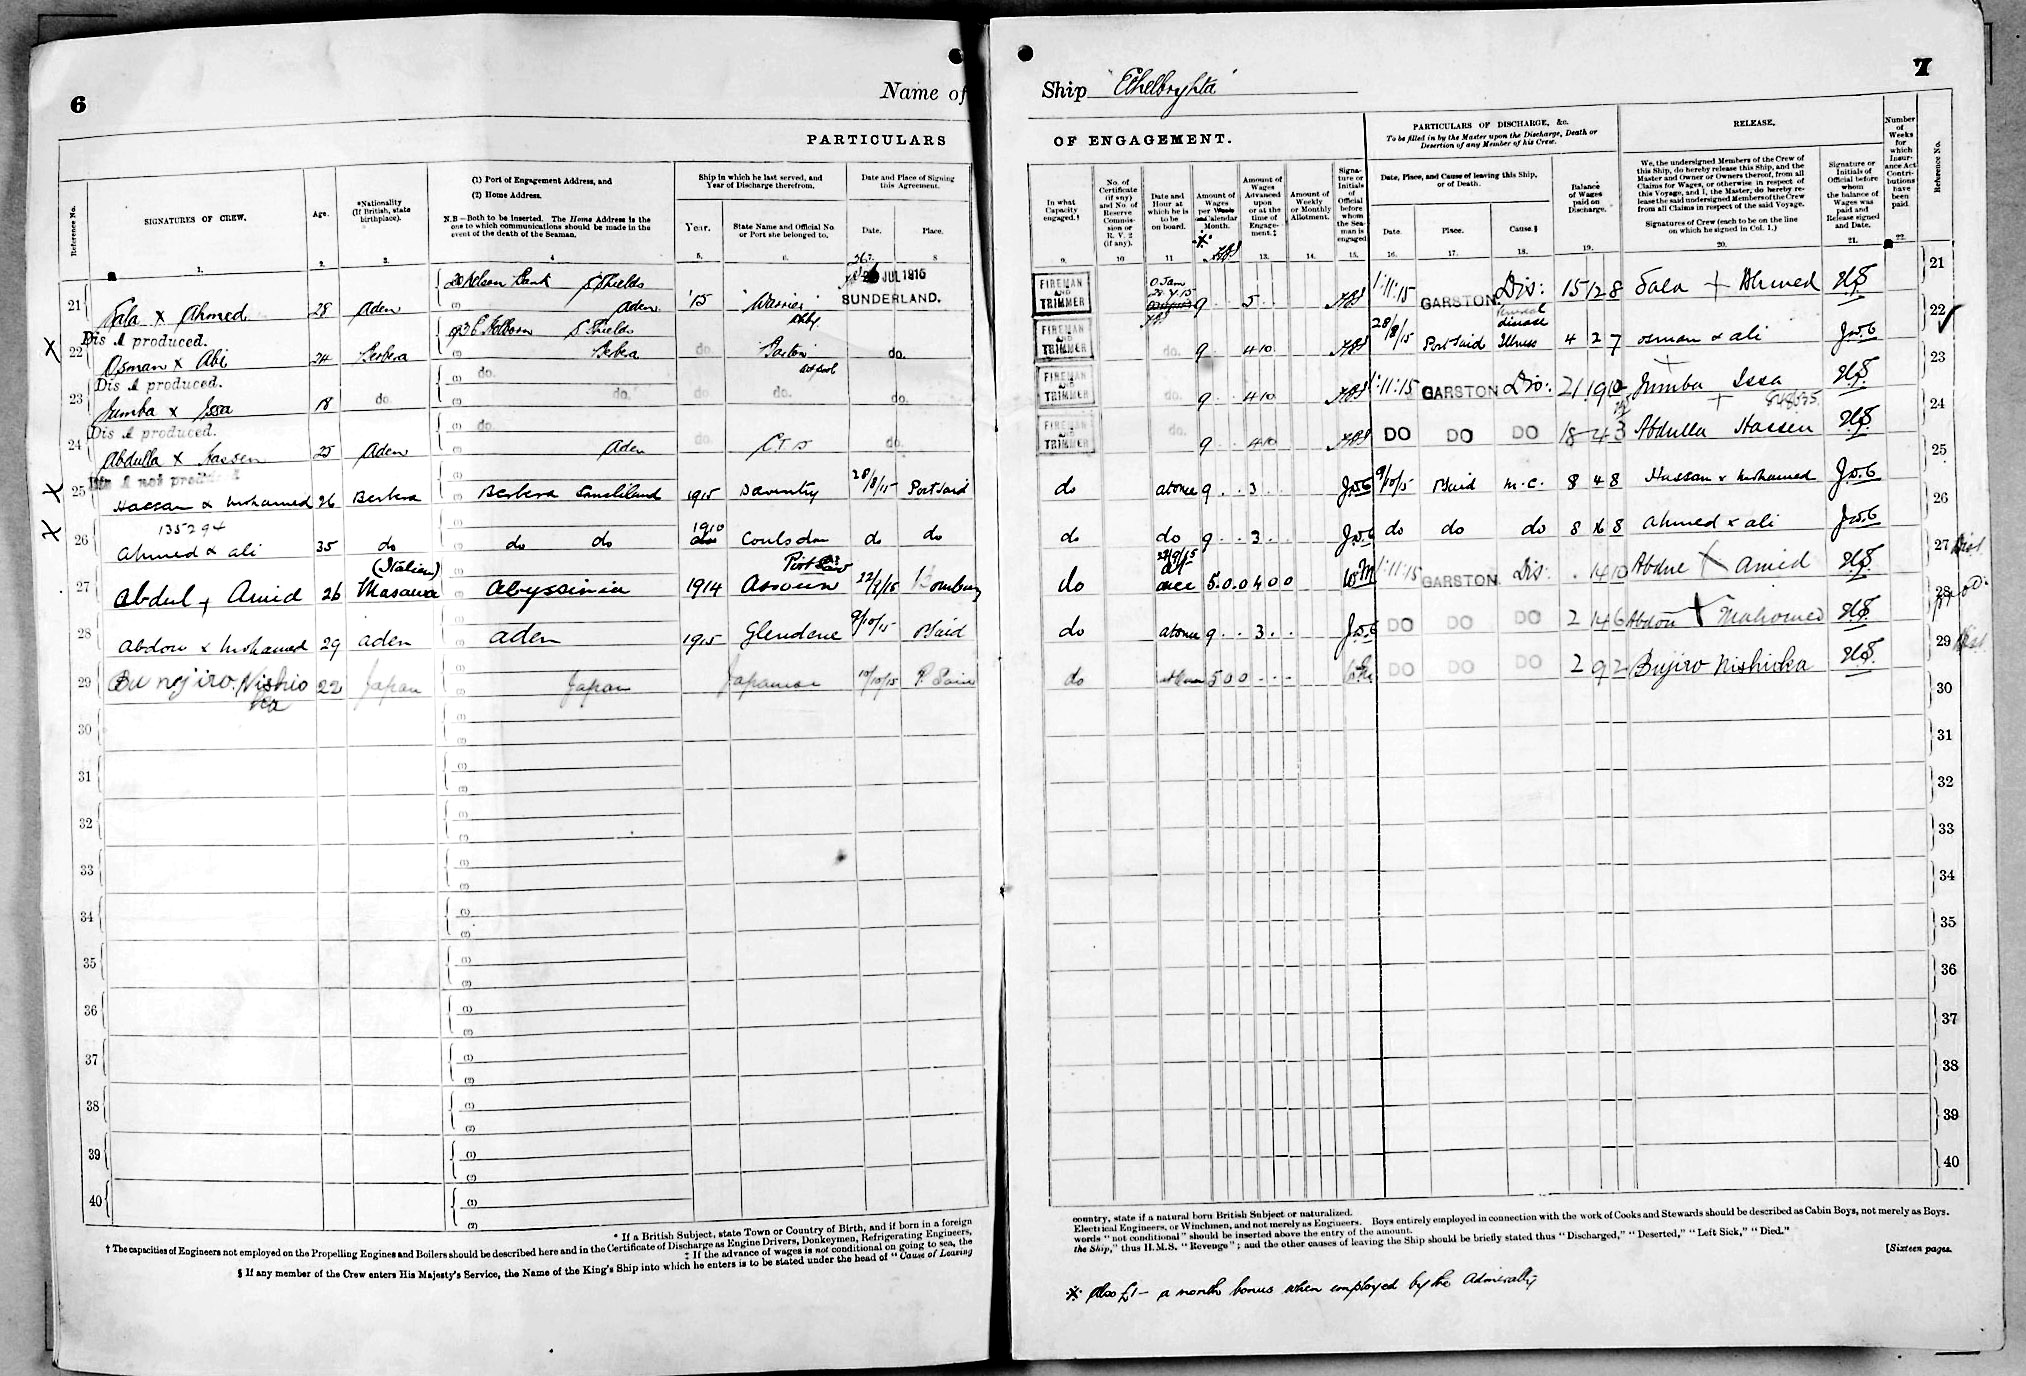 6
Name of
PARTICULARS
Reference No.
SIGNATURES OF CREW.
Age.
*Nationality (If British, state birthplace).
(1) Port of Engagement Address, and
(2) Home Address.
N.B—Both to be inserted. The Home Address is the one to which communications should be made in the event of the death of the Seaman.
Ship in which he last served, and Year of Discharge therefrom.
Year.
State Name and Official No. or Port she belonged to.
Date and Place of Signing this Agreement.
Date.
Place.
1. 2. 3. 4 5. 6. 7. 8
JUL 1915
SUNDERLAND.
21 Sala x Ahmed 28 Aden S Shields Aden '15 Warrior
Dis A produced.
22 Osman x Abi 24 Berbera S Shields Berbera do. do.
Dis A produced.
23 Jumba x Issa 18 do. do. do. do. do. do.
Dis A produced.
24 Abdulla x Hassen 25 Aden do. Aden do. do.
25 Hassan x Mohamed 26 Berbera Berbera Somaliland 1915 Daventry 28/8/15 Port Said
135294
26 Ahmed x ali 35 do do do 1910 Coulsdon do do
(Italian)
27 Abdul + Amid 26 Masawa Abyssinia 1914 Bombay
28 Abdou x Mohamed 29 aden aden 1915 Glendene 9/10/15 PSaid
29 Bunojiro Nishioka 22 Japan Japan Japanese 10/10/15 P. Said
30
31
32
33
34
35
36
37
38
39
40
* If a British Subject, state Town or Country of Birth, and if born in a foreign
† The capacities of Engineers not employed on the Propelling Engines and Boilers should be described here and in the Certificate of Discharge as Engine Drivers, Donkeymen, Refrigerating Engineers,
‡ If the advance of wages is not conditional on going to sea, the
§ If any member of the Crew enters His Majesty's Service, the Name of the King's Ship into which he enters is to be stated under the head of "Cause of Leaving
7
Ship "Ethelbryhta"
OF ENGAGEMENT.
PARTICULARS OF DISCHARGE, &c.
To be filled in by the Master upon the Discharge, Death or Desertion of any Member of his Crew.
RELEASE.
Number of Weeks for which Insurance Act Contributions have been paid
Reference No.
In what Capacity engaged.†
No. of Certificate (if any) and No. of Reserve Commission or R.V.2 (if any).
Date and Hour at which he is to be on board.
Amount of Wages per Week and Calendar Month.
Amount of Wages Advanced upon or at the time of Engagement.‡
Amount of Weekly or Monthly Allotment.
Signature or Initials of Official before whom the Seaman is engaged
Date, Place, and Cause of leaving this Ship, or of Death.
Date.
Place.
Cause.§
Balance of Wages paid on Discharge.
We, the undersigned Members of the Crew of this Ship, do hereby release this Ship, and the Master and Owner or Owners thereof, from all Claims for Wages, or otherwise in respect of this Voyage, and I, the Master, do hereby release the said undersigned Members of the Crew from all Claims in respect of the said Voyage.
Signatures of Crew (each to be on the line on which he signed in Col. 1.)
Signature or Initials of Official before whom the balance of Wages was paid and Release signed and Date.
9. 10 11 12. 13. 14. 15. 16. 17. 18. 19. 20. 21. 22.
FIREMAN AND TRIMMER 9 5 1:11:15 GARSTON Dis: 15 12 8 Sala + Ahmed 21
FIREMAN AND TRIMMER do. 9 4 10 28/8/15 Port Said disease Illness 4 2 7 osman x ali 22
FIREMAN AND TRIMMER do. 9 4 10 1:11:15 GARSTON Dis: 21 19 Jumba + Issa 23
FIREMAN AND TRIMMER do. 9 4 10 DO DO DO 18 4 3 Abdulla + Hassen 24
do at once 9 3 9/10/15 PSaid m.c. 8 4 8 Hassan x Mohamed 25
do do 9 3 do do do 8 16 8 ahmed x ali 26
do 5 0 0 4 0 0 1:11:15 GARSTON Dis: 14 10 Abdue X Amid 27
do at once 9 3 DO DO DO 2 14 6 Abdou X Mahomed 28
do 5 0 0 DO DO DO 2 9 2 Bujiro Nishioka 29
30
31
32
33
34
35
36
37
38
39
40
country, state if a natural born British Subject or naturalized.
Electrical Engineers, or Winchmen, and not merely as Engineers. Boys entirely employed in connection with the work of Cooks and Stewards should be described as Cabin Boys, not merely as Boys.
words "not conditional" should be inserted above the entry of the amount.
the Ship," thus H.M.S. "Revenge"; and the other causes of leaving the Ship should be briefly stated thus "Discharged," "Deserted," "Left Sick," "Died."
[Sixteen pages.
* Also £1– a month bonus when employed by the Admiralty